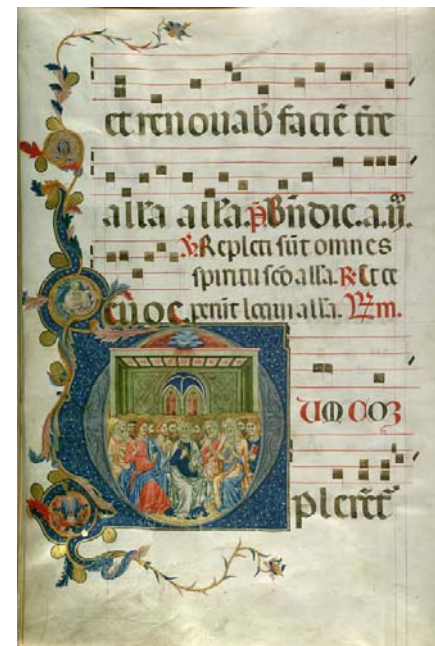 et renouab facie tre
alla alla. Ps Bndic. a.
V. Repleti sut omnes
spiritu sco alla. R. Et ce
euoc. perut loqui alla.
UM COM
pleret